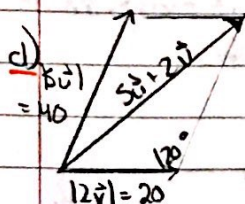 d)
|5u⃗|
= 40
5u⃗ + 2v⃗
120°
|2v⃗| = 20